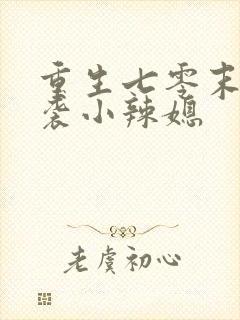 重生七零末
袭小辣媳
老虞初心